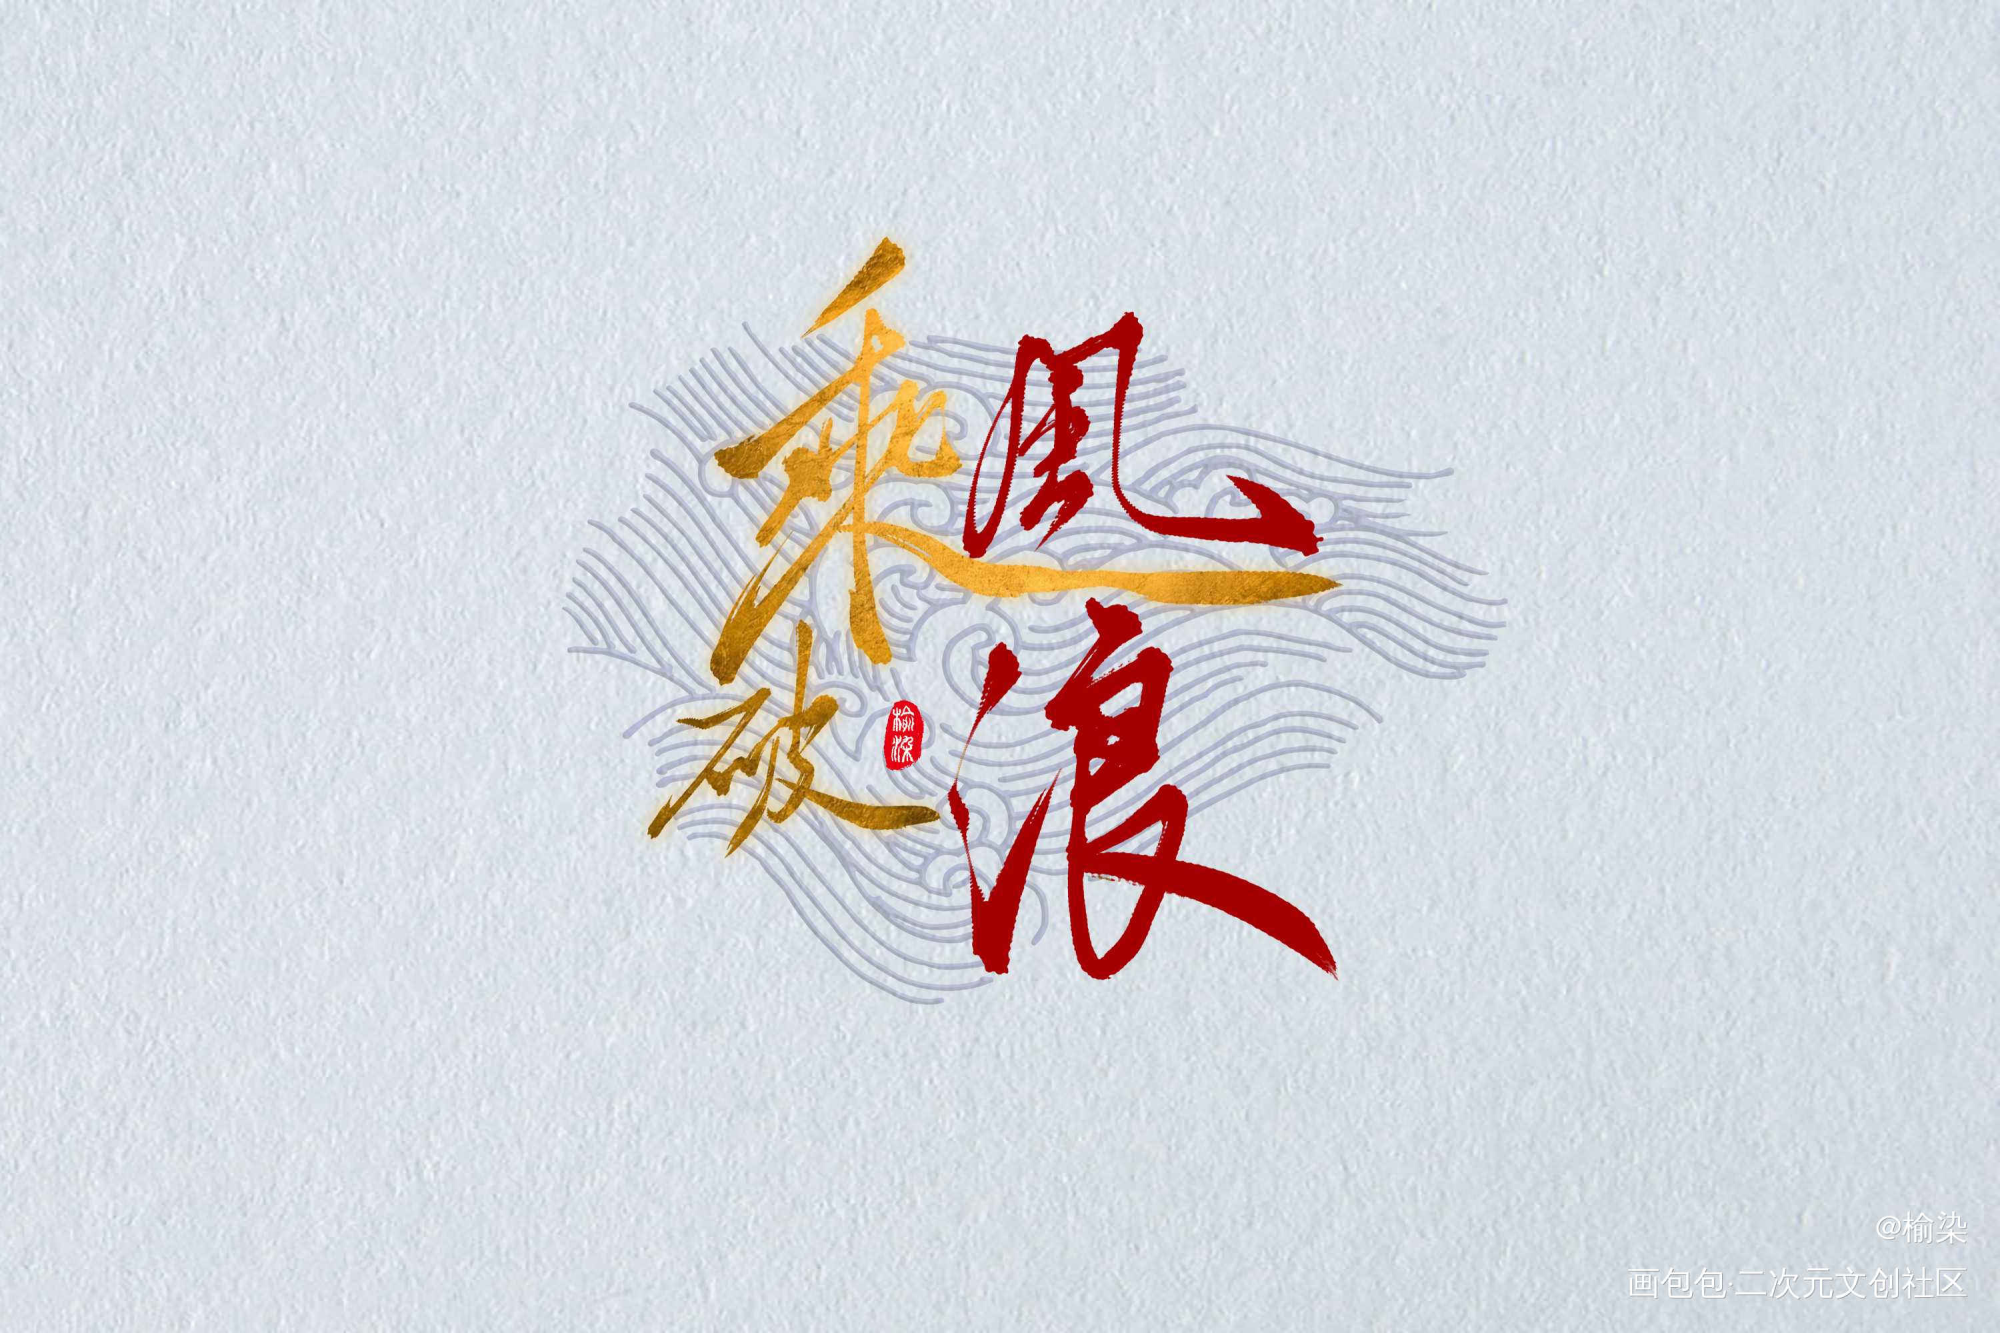 乘風
破浪
榆染
@榆染
画包包·二次元文创社区